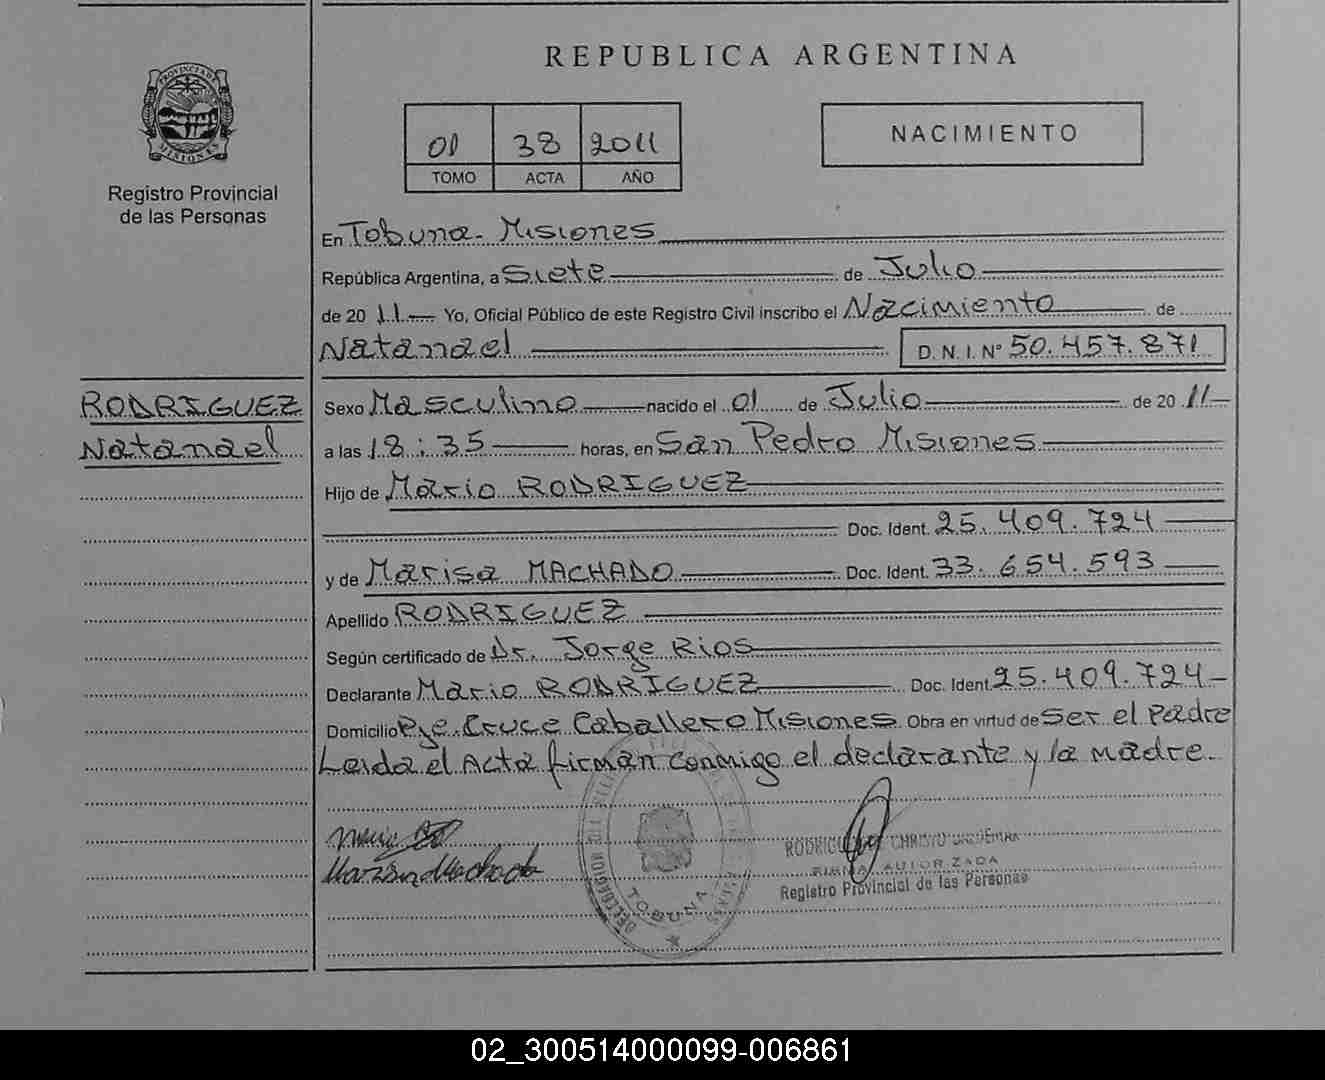 REPUBLICA ARGENTINA
PROVINCIA DE MISIONES
Registro Provincial
de las Personas
01 38 2011
TOMO ACTA AÑO
NACIMIENTO
En Tobuna - Misiones
República Argentina, a Siete de Julio
de 20 11 Yo, Oficial Público de este Registro Civil inscribo el Nacimiento de
Natanael D.N.I. N° 50.457.871
RODRIGUEZ
Natanael
Sexo Masculino nacido el 01 de Julio de 20 11
a las 18:35 horas, en San Pedro Misiones
Hijo de Mario RODRIGUEZ
Doc. Ident. 25.409.724
y de Marisa MACHADO Doc. Ident. 33.654.593
Apellido RODRIGUEZ
Según certificado de Dr. Jorge Rios
Declarante Mario RODRIGUEZ Doc. Ident. 25.409.724
Domicilio Pje. Cruce Caballero Misiones. Obra en virtud de Ser el Padre
Leida el Acta firman conmigo el declarante y la madre.
Machado
TOBUNA
FIRMA AUTORIZADA
Registro Provincial de las Personas
02_300514000099-006861